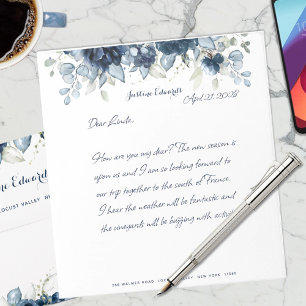 Justine Edwards
April 21, 2025
Dear Linde,
How are you my dear? The new season is
upon us and I am so looking forward to
our trip together to the south of France.
I hear the weather will be fantastic and
the vineyards will be buzzing with
Edwards
LOCUST VALLEY
LOCUST VALLEY · NEW YORK